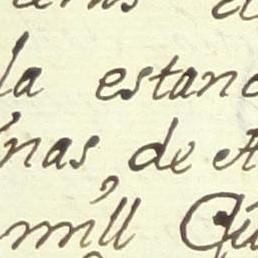 la estanc
nas, de A
mill Qu